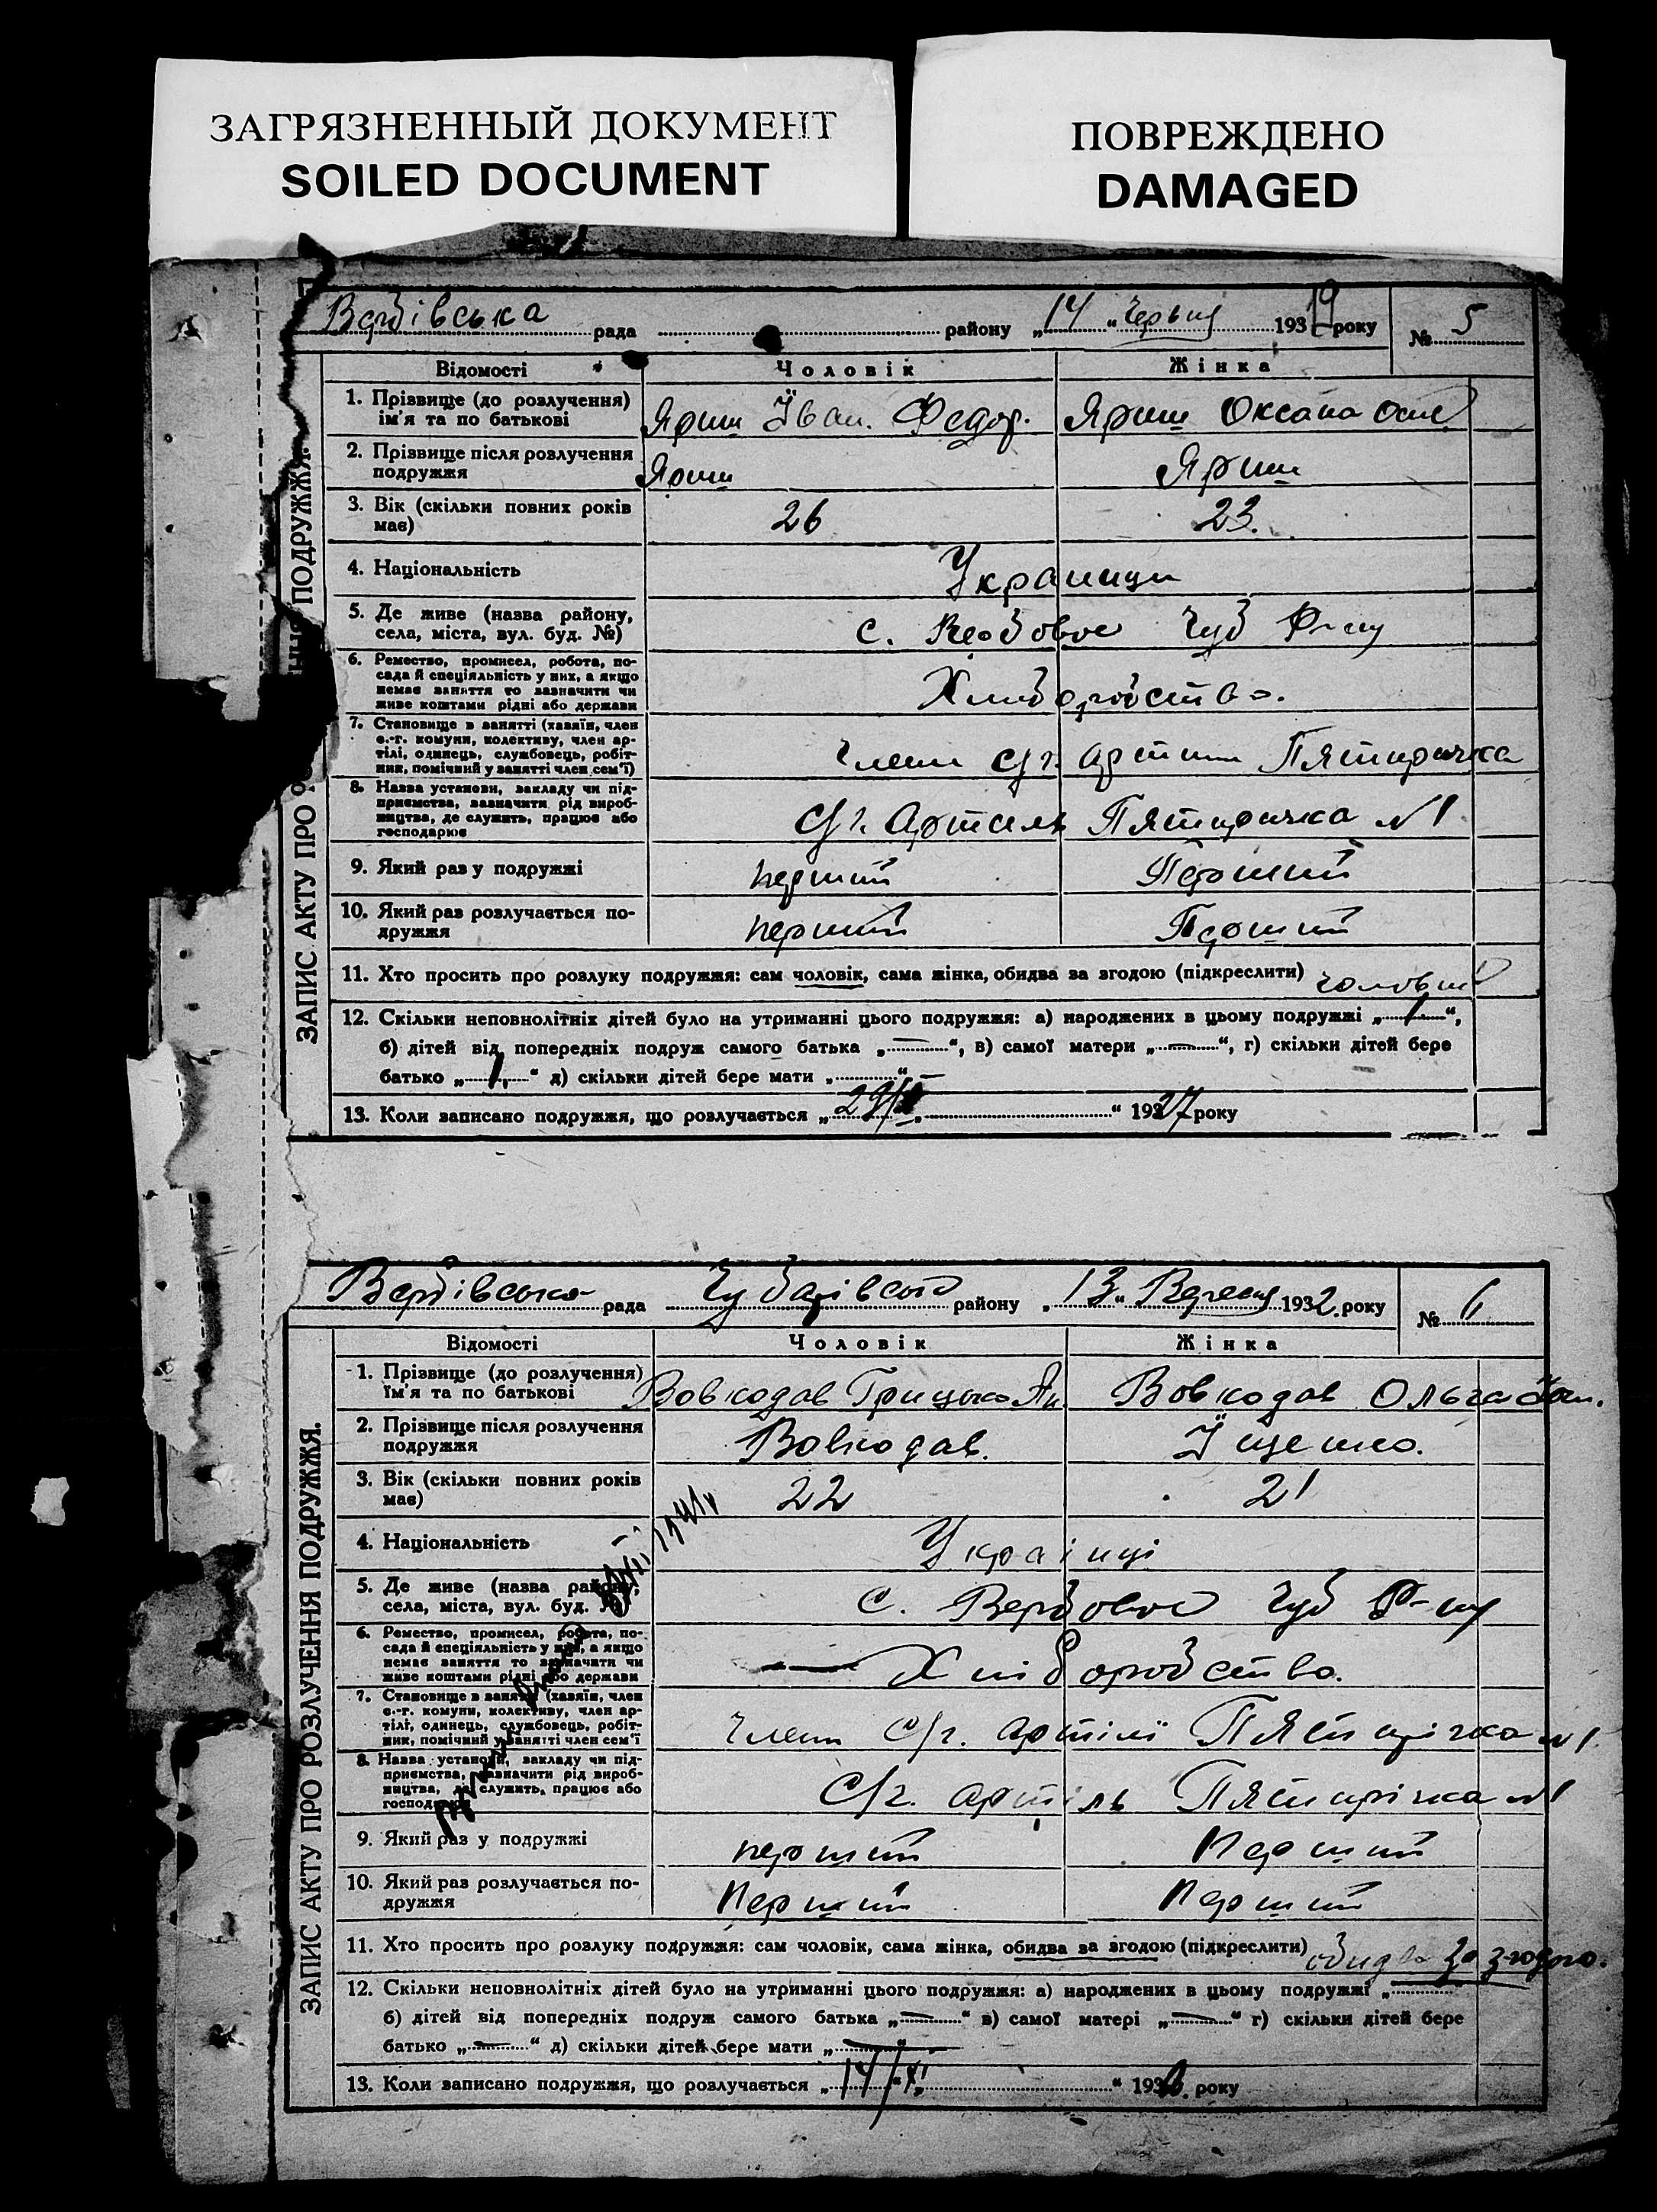 ЗАГРЯЗНЕННЫЙ ДОКУМЕНТ
SOILED DOCUMENT
ПОВРЕЖДЕНО
DAMAGED
Вербівська рада району „14“ Червня 193 року № 5
ЗАПИС АКТУ ПРО ПОДРУЖЖЯ.
Відомості Чоловік Жінка
1. Прізвище (до розлучення) ім'я та по батькові Яриш Їван. Федор. Яриш Оксана
2. Прізвище після розлучення подружжя Яриш Яриш
3. Вік (скільки повних років має) 26 23.
4. Національність Украинци
5. Де живе (назва району, села, міста, вул. буд. №) с. Вербовое Чуб Р-ну
6. Ремество, промисел, робота, по-
сада й спеціяльність у них, а якщо
немає заняття то зазначити чи
живе коштами рідні або держави
7. Становище в занятті (хазяїн, член
с.-г. комуни, колективу, член ар-
тілі, одинець, службовець, робіт-
ник, помічний у занятті член сем'ї)
член с/г. артили Пятиричка
8. Назва установи, закладу чи під-
приємства, зазначити рід вироб-
ництва, де служить, працює або
господарює
с/г. Артель Пятиричка №1
9. Який раз у подружжі перший Перший
10. Який раз розлучається по-
дружжя перший Перший
11. Хто просить про розлуку подружжя: сам чоловік, сама жінка, обидва за згодою (підкреслити)
12. Скільки неповнолітніх дітей було на утриманні цього подружжя: а) народжених в цьому подружжі „1“,
б) дітей від попередніх подруж самого батька „—“, в) самої матери „—“, г) скільки дітей бере
батько „1“ д) скільки дітей бере мати „ “ —
13. Коли записано подружжя, що розлучається „ “ 1927 року
Вербівська рада Чубарівського району „13“ Вересня 1932. року № 6
ЗАПИС АКТУ ПРО РОЗЛУЧЕННЯ ПОДРУЖЖЯ.
Відомості Чоловік Жінка
1. Прізвище (до розлучення) ім'я та по батькові Вовкодав Грицько Вовкодав Ольга
2. Прізвище після розлучення подружжя Вовкодав. Їщенко.
3. Вік (скільки повних років має) 22 21
4. Національність Українці
5. Де живе (назва району, села, міста, вул. буд. №) с. Вербовое Чуб Р-ну
6. Ремество, промисел, робота, по-
сада й спеціяльність у них, а якщо
немає заняття то зазначити чи
живе коштами рідні або держави
Хліборобство.
7. Становище в занятті (хазяїн, член
с.-г. комуни, колективу, член ар-
тілі, одинець, службовець, робіт-
ник, помічний у занятті член сем'ї
член с/г. артілі Пятирічка №1
8. Назва установи, закладу чи під-
приємства, зазначити рід вироб-
ництва, де служить, працює або
господарює
с/г. артіль Пятирічка №1
9. Який раз у подружжі перший Перший
10. Який раз розлучається по-
дружжя Перший Перший
11. Хто просить про розлуку подружжя: сам чоловік, сама жінка, обидва за згодою (підкреслити) обидва за згодою.
12. Скільки неповнолітніх дітей було на утриманні цього подружжя: а) народжених в цьому подружжі „ “
б) дітей від попередніх подруж самого батька „—“ в) самої матері „—“ г) скільки дітей бере
батько „—“ д) скільки дітей бере мати „—“
13. Коли записано подружжя, що розлучається „14/ “ 193 . року